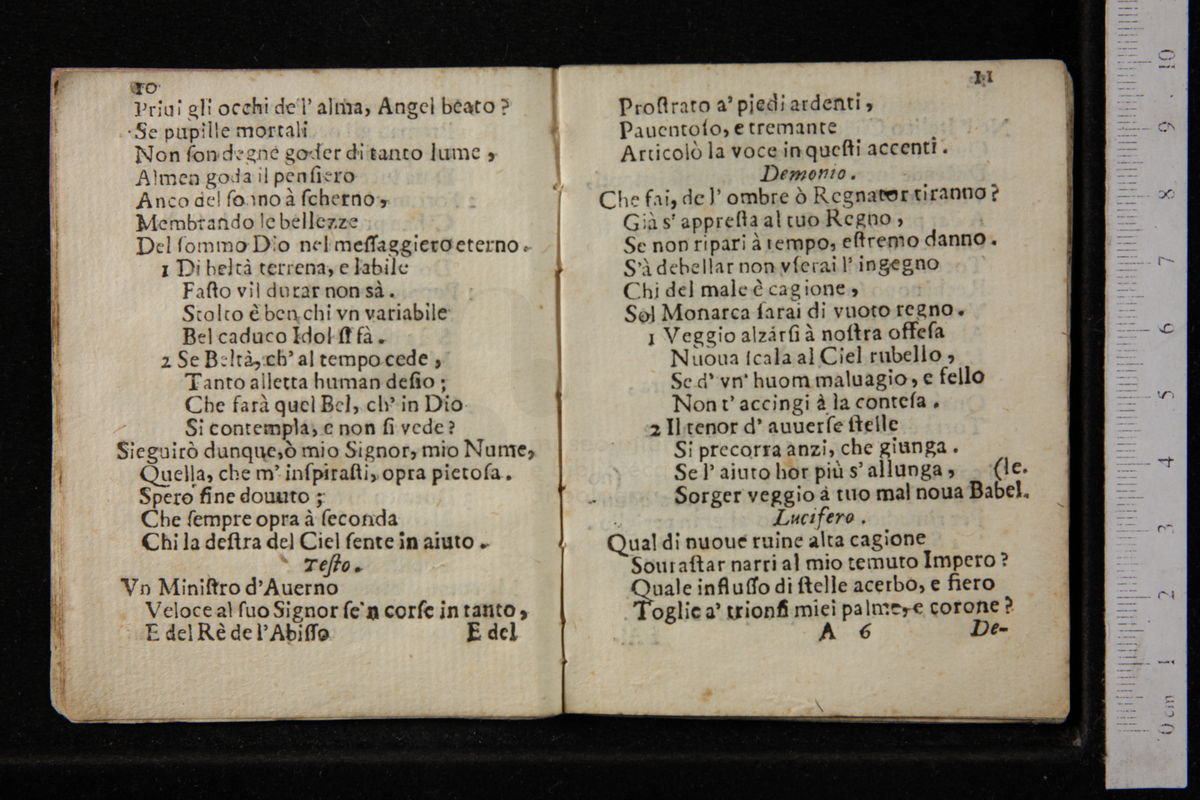 10
Priui gli occhi de l' alma, Angel beato ?
Se pupille mortali
Non ſon degne goder di tanto lume ,
Almen goda il penſiero
Anco del ſonno à ſcherno ,
Membrando le bellezze
Del ſommo Dio nel meſſaggiero eterno .
1 Di beltà terrena, e labile
Faſto vil durar non sà .
Stolto è ben chi vn variabile
Bel caduco Idol ſi fà .
2 Se Beltà, ch' al tempo cede ,
Tanto alletta human deſio ;
Che farà quel Bel, ch' in Dio
Si contempla, e non ſi vede ?
Sieguirò dunque, ò mio Signor, mio Nume,
Quella, che m' inſpiraſti, opra pietoſa .
Spero fine douuto ;
Che ſempre opra à ſeconda
Chi la deſtra del Ciel ſente in aiuto .
Teſto .
Vn Miniſtro d'Auerno
Veloce al ſuo Signor ſe'n corſe in tanto ,
E del Rè de l'Abiſſo
E del
11
Proſtrato a' piedi ardenti ,
Pauentoſo, e tremante
Articolò la voce in queſti accenti .
Demonio .
Che fai, de l' ombre ò Regnator tiranno ?
Già s' appreſta al tuo Regno ,
Se non ripari à tempo, eſtremo danno .
S'à debellar non vſerai l' ingegno
Chi del male è cagione ,
Sol Monarca ſarai di vuoto regno .
1 Veggio alzárſi à noſtra offeſa
Nuoua ſcala al Ciel rubello ,
Se d' vn' huom maluagio, e fello
Non t' accingi à la conteſa .
2 Il tenor d' auuerſe ſtelle
Si precorra anzi, che giunga .
Se l' aiuto hor più s' allunga , (le.
Sorger veggio á tuo mal noua Babel.
Lucifero .
Qual di nuoue ruine alta cagione
Souraſtar narri al mio temuto Impero ?
Quale influſſo di ſtelle acerbo, e fiero
Toglie a' trionfi miei palme, e corone ?
A 6
De-